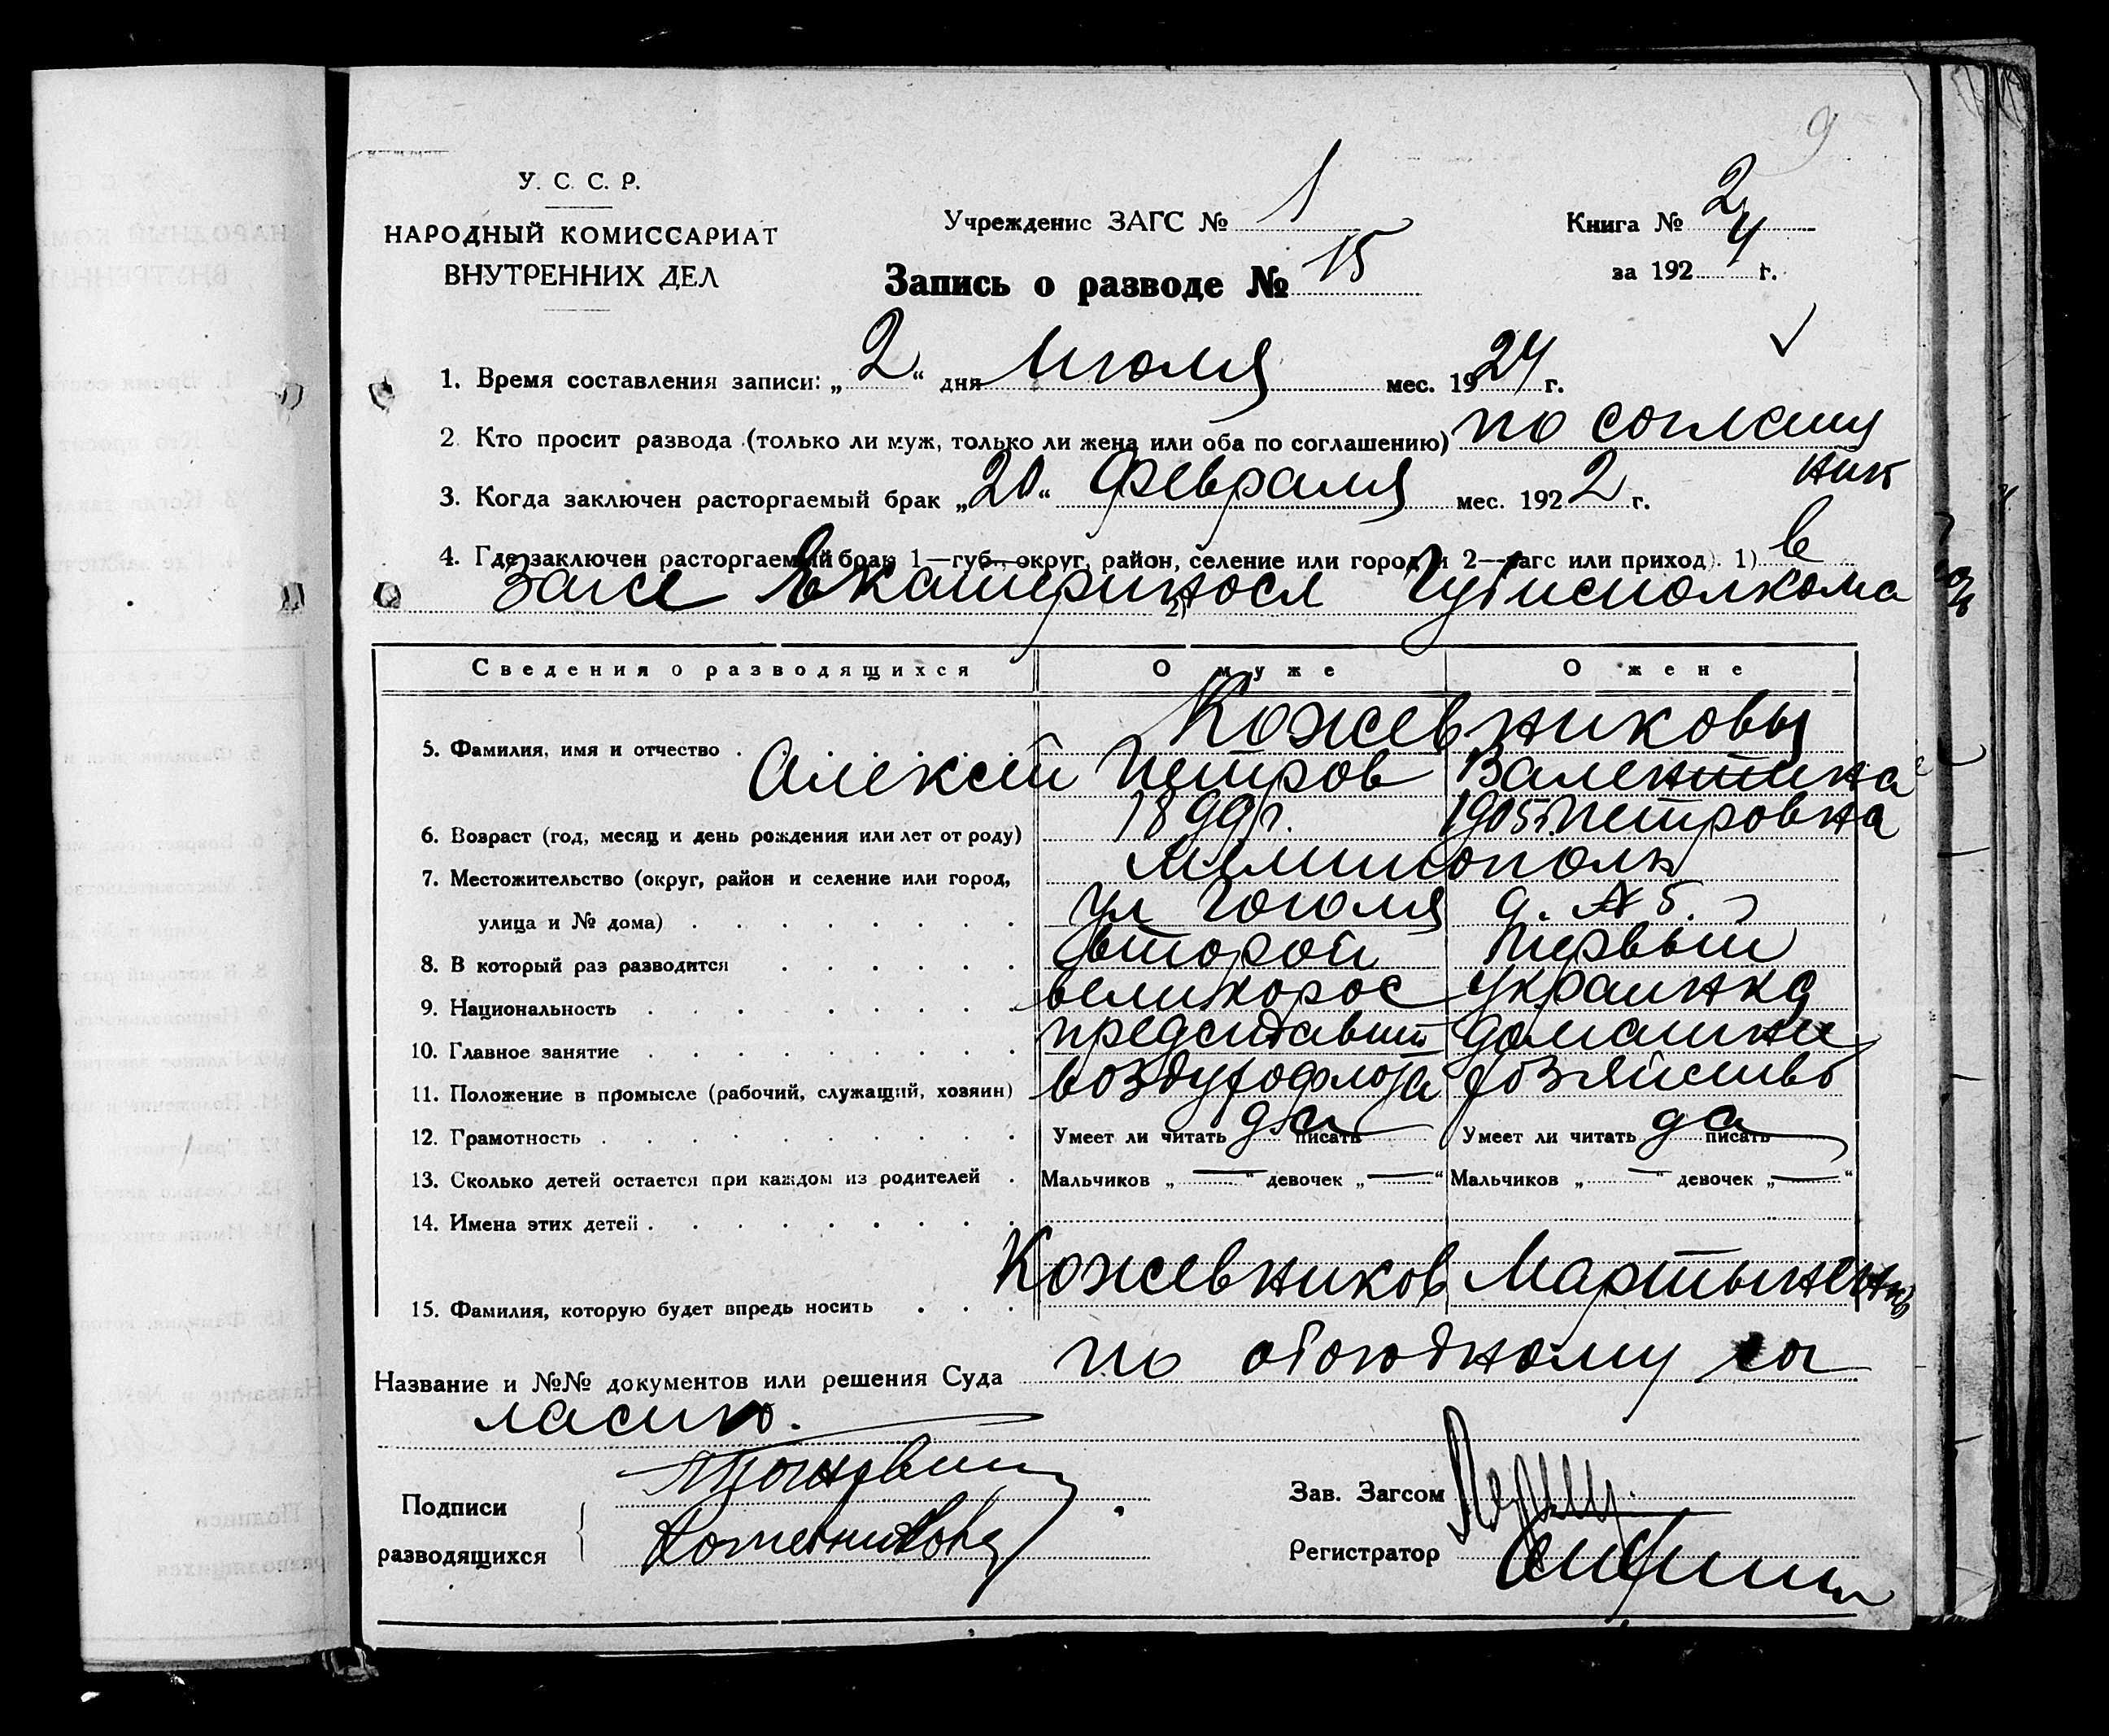 9
У. С. С. Р.
НАРОДНЫЙ КОМИССАРИАТ
ВНУТРЕННИХ ДЕЛ
Учреждение ЗАГС № 1
Запись о разводе № 15
Книга № 2
за 192 4 г.
1. Время составления записи: „ 2 “ дня Июля мес. 19 24 г.
2. Кто просит развода (только ли муж, только ли жена или оба по соглашению) по соглаше
нию
3. Когда заключен расторгаемый брак „ 20 “ февраля мес. 192 2 г.
4. Где заключен расторгаемый брак 1—губ., округ, район, селение или город и 2—загс или приход). 1) в
Загсе Екатериносл 2) Губисполкома
Сведения о разводящихся О муже О жене
Кожевниковы
5. Фамилия, имя и отчество Алексей Петров Валентина
6. Возраст (год, месяц и день рождения или лет от роду) 1899 г. 1905 г. Петровна
7. Местожительство (округ, район и селение или город, Мелитополь
улица и № дома) ул Гоголя д. № 5.
8. В который раз разводится второй первый
9. Национальность великорос украинка
10. Главное занятие представит домашнее
11. Положение в промысле (рабочий, служащий, хозяин) воздухофлота хозяйство
12. Грамотность Умеет ли читать да писать Умеет ли читать да писать
13. Сколько детей остается при каждом из родителей Мальчиков „ — “ девочек „ — “ Мальчиков „ — “ девочек „ — “
14. Имена этих детей
15. Фамилия, которую будет впредь носить Кожевников Мартыненко
Название и №№ документов или решения Суда по обоюдному со
гласию.
Подписи
разводящихся
Кожевникова
Зав. Загсом
Регистратор